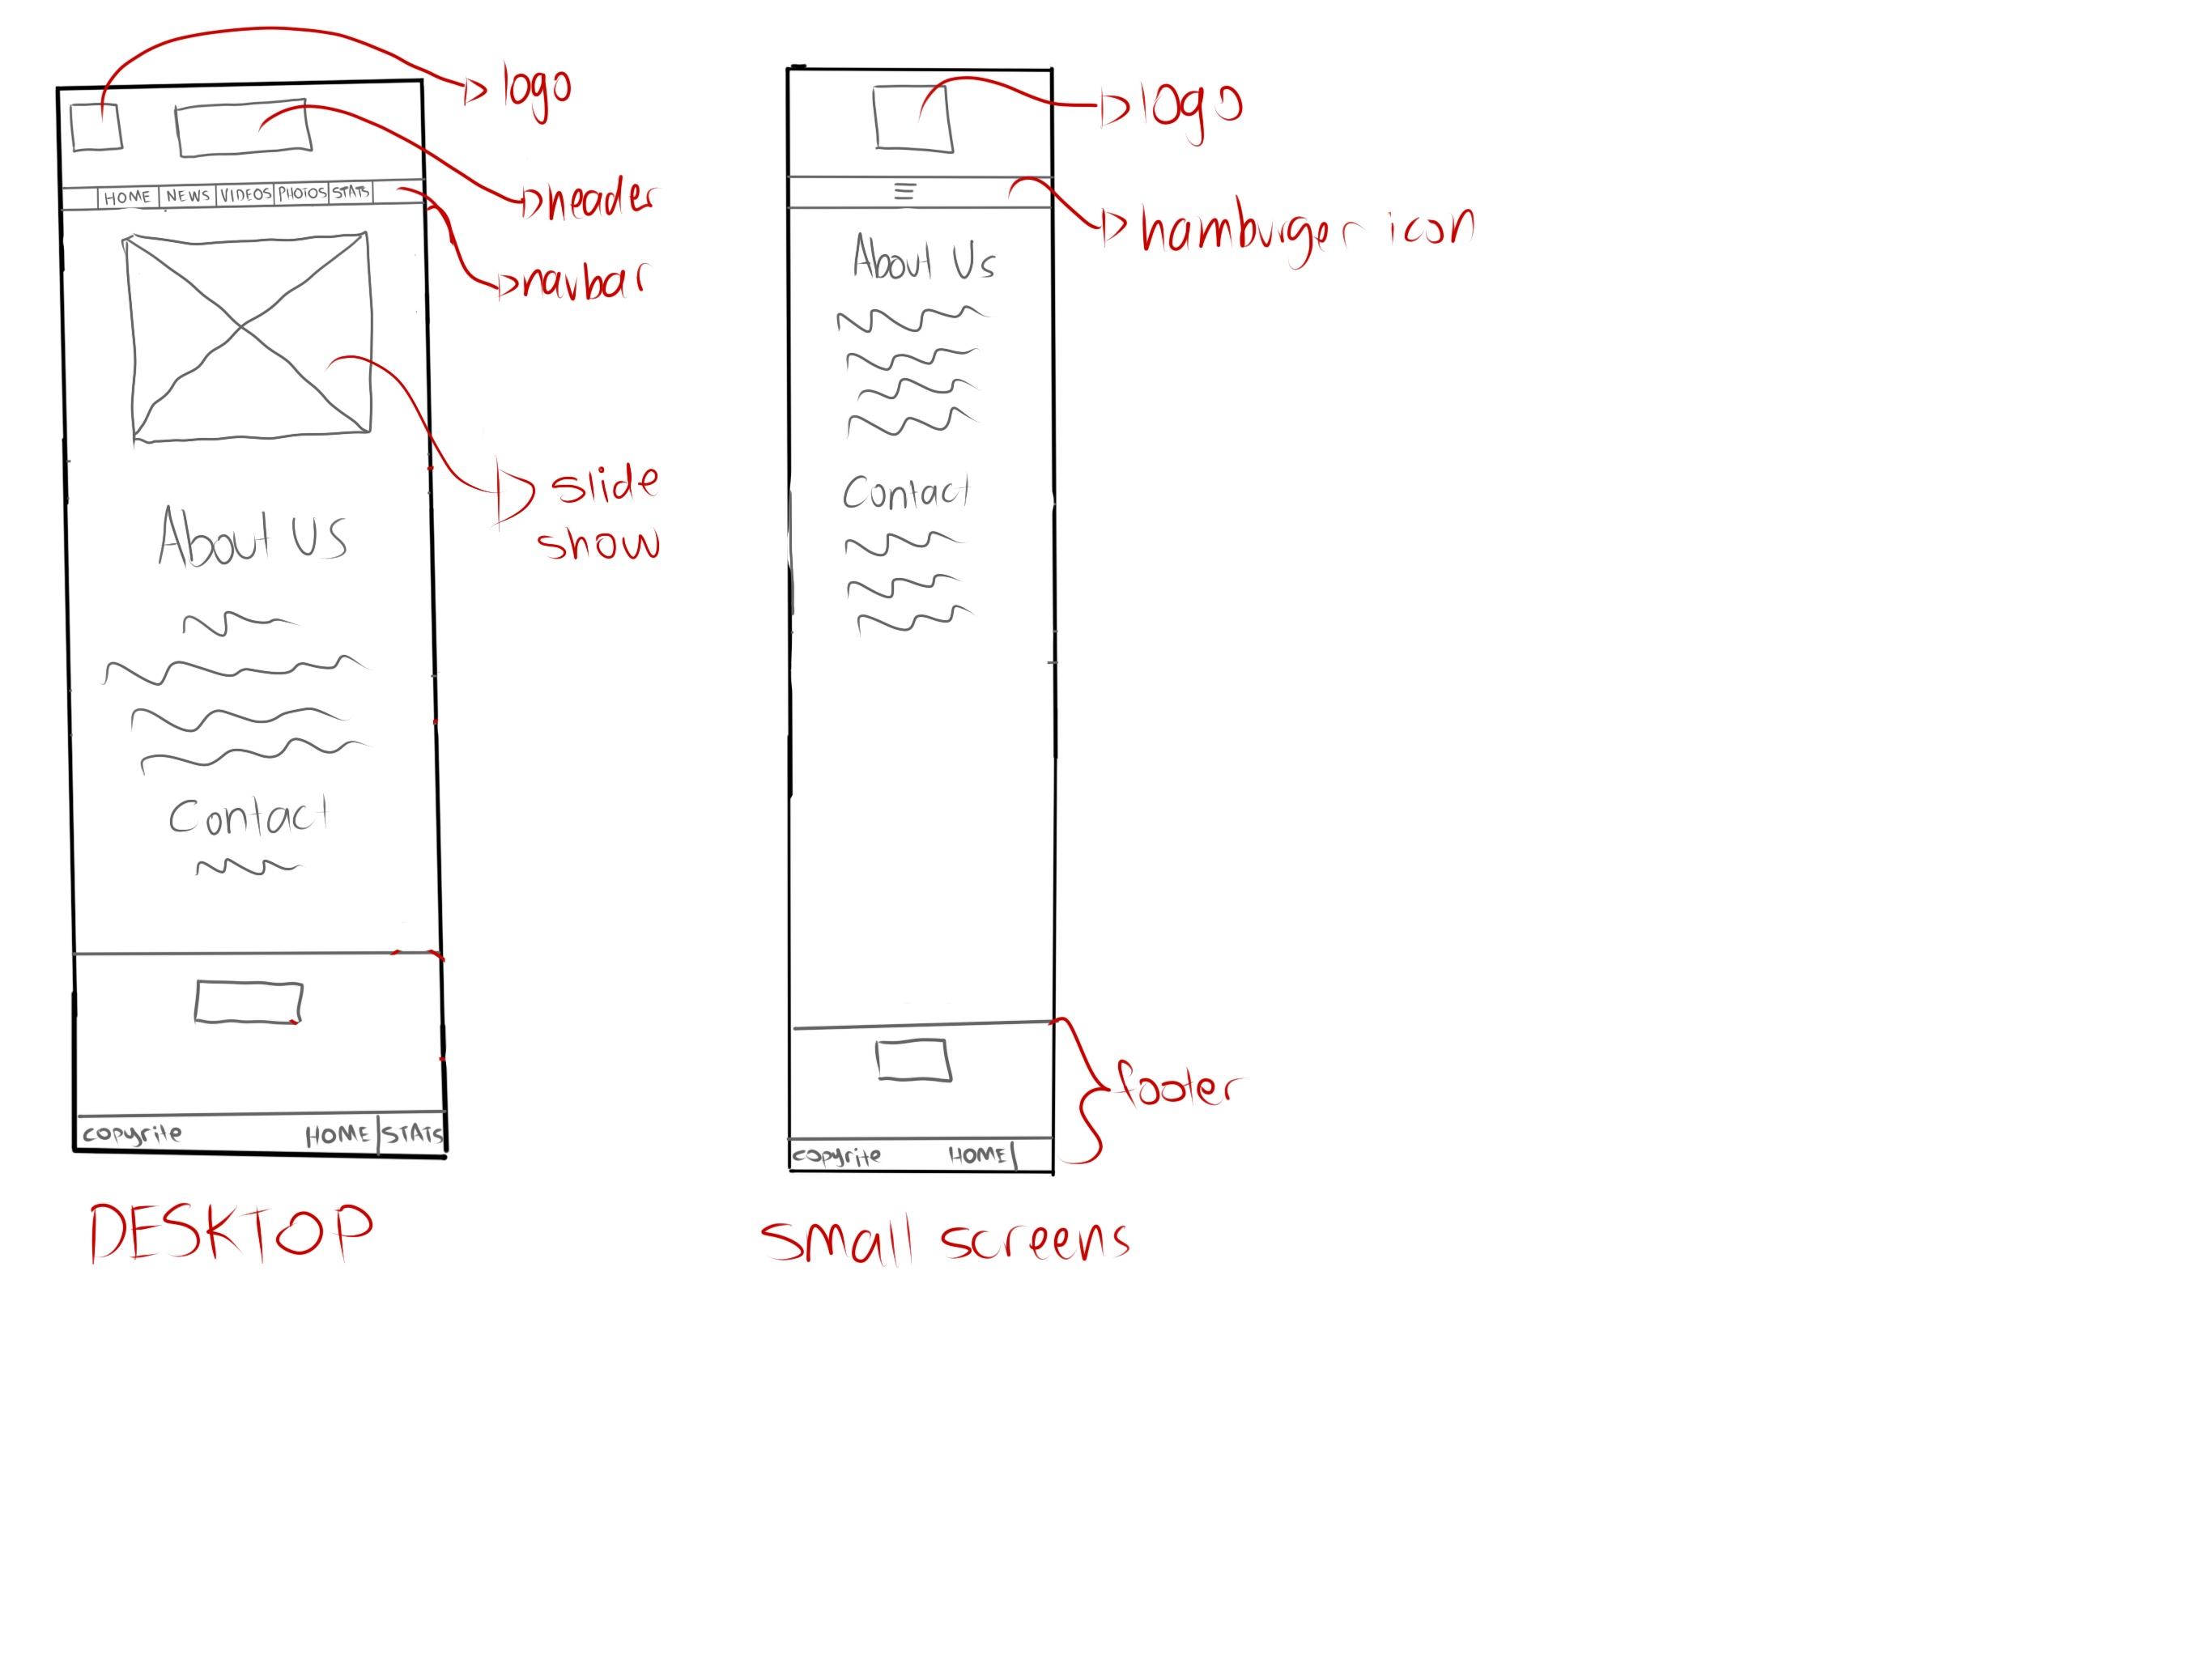 logo
header
navbar
HOME NEWS VIDEOS PHOTOS STATS
slide
show
About Us
Contact
copyrite HOME STATS
DESKTOP
logo
hamburger icon
About Us
Contact
footer
copyrite HOME
Small screens